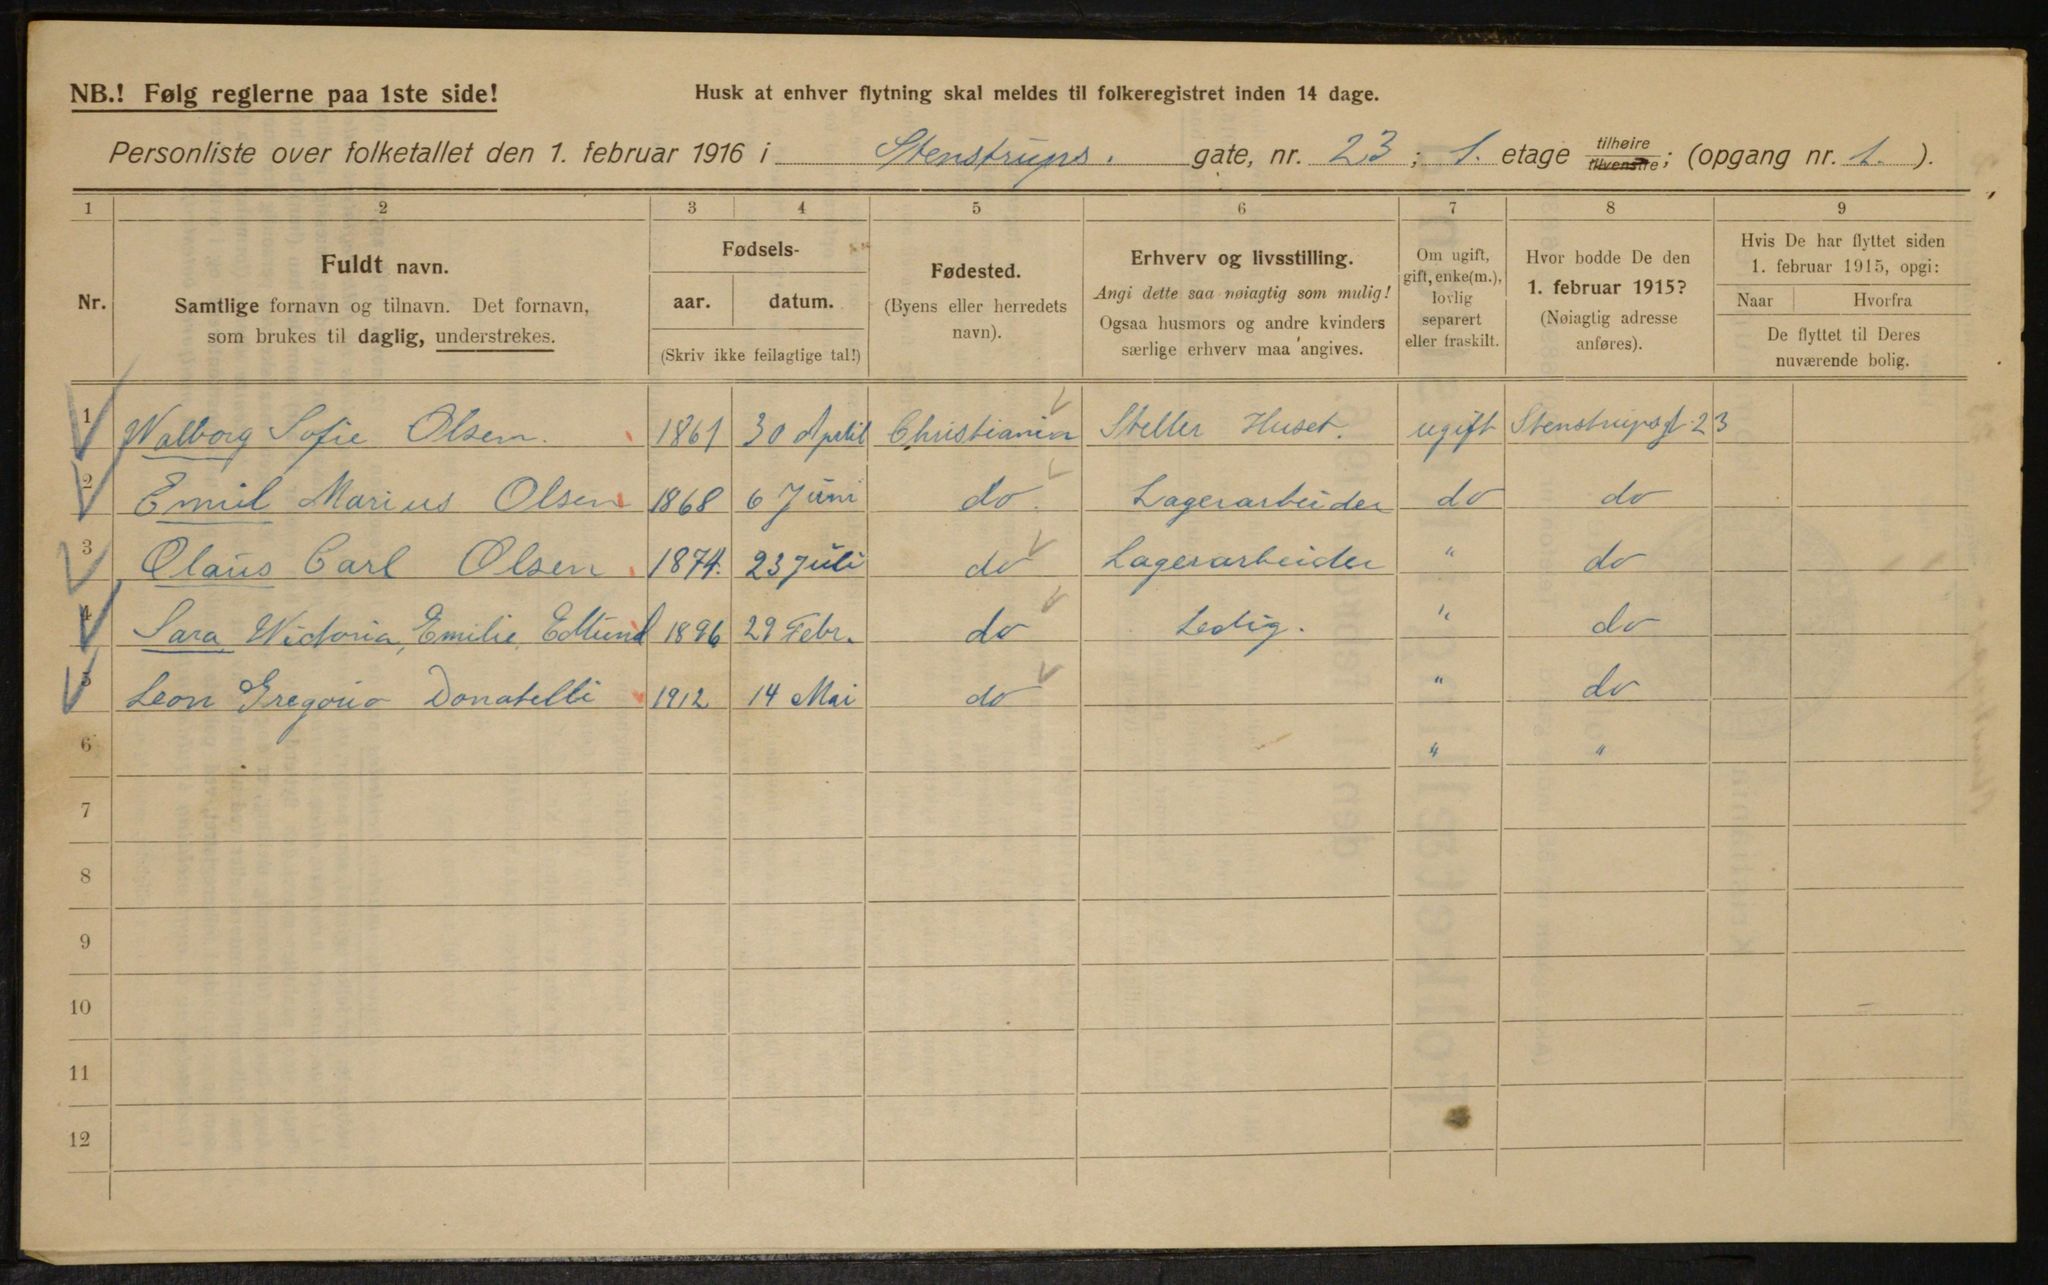 NB.! Følg reglerne paa 1ste side!
Husk at enhver flytning skal meldes til folkeregistret inden 14 dage.
Personliste over folketallet den 1. februar 1916 i Stenstrups. gate, nr. 23 ; 1. etage tilhøire tilvenstre; (opgang nr. 1. ).
1 2 3 4 5 6 7 8 9
Nr.
Fuldt navn.
Samtlige fornavn og tilnavn. Det fornavn,
som brukes til daglig, understrekes.
Fødsels-
aar. datum.
(Skriv ikke feilagtige tal!)
Fødested.
(Byens eller herredets
navn).
Erhverv og livsstilling.
Angi dette saa nøiagtig som mulig!
Ogsaa husmors og andre kvinders
særlige erhverv maa angives.
Om ugift,
gift, enke(m.),
lovlig
separert
eller fraskilt.
Hvor bodde De den
1. februar 1915?
(Nøiagtig adresse
anføres).
Hvis De har flyttet siden
1. februar 1915, opgi:
Naar Hvorfra
De flyttet til Deres
nuværende bolig.
1 Walborg Sofie Olsen. 1861 30 April Christiania Steller Huset. ugift Stenstrupsgt 23
2 Emil Marius Olsen 1868 6 Juni do. Lagerarbeider do do
3 Olaus Carl Olsen 1874. 23 Juli do Lagerarbeider " do
4 Sara, Victoria, Emilie, Edlund 1896 29 Febr. do Ledig. " do
5 Leon Gregorio Donatelli 1912 14 Mai do " do
6 " "
7
8
9
10
11
12